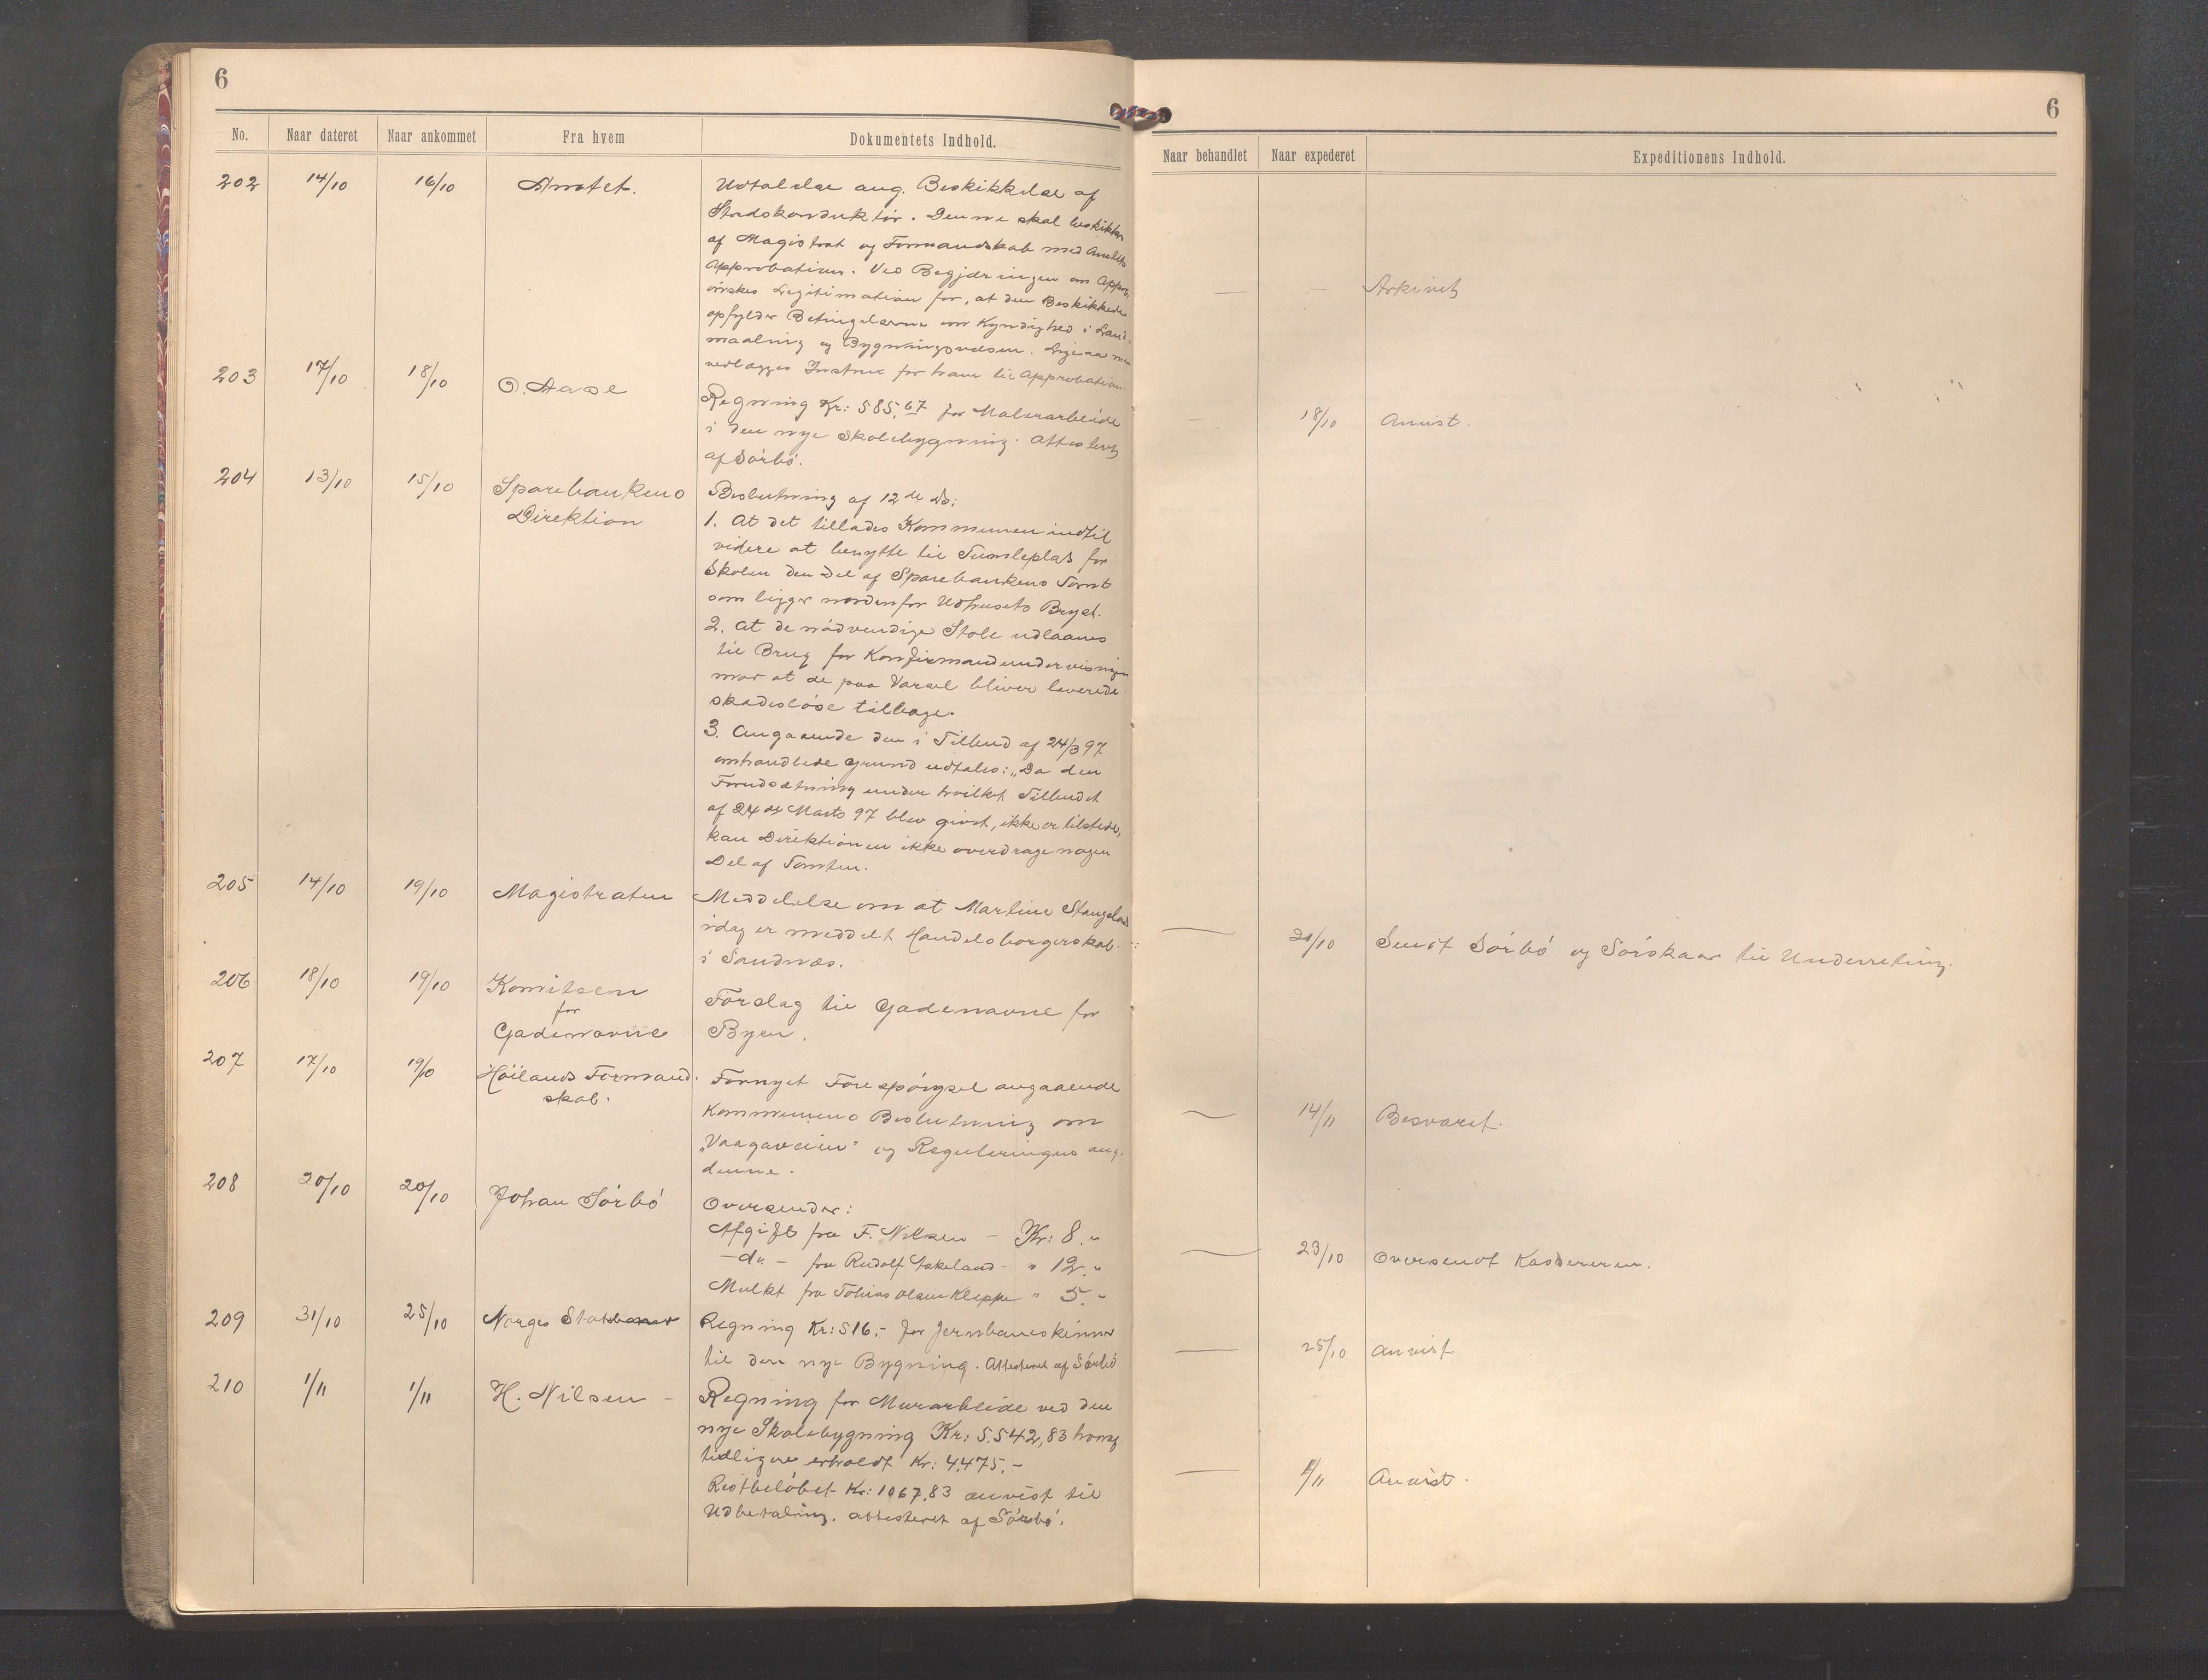 6
No. Naar dateret Naar ankommet Fra hvem Dokumentets Indhold.
202 14/10 16/10 Amtet. Udtalelse ang. Beskikkelse af
Stadskonduktör. Denne skal beskikkes
af Magistrat og Formandskab med Amtets
Approbation. Ved Begjæringen om Appro.
önskes Legitimation for, at den Beskikkede
opfylder Betingelserne om Kyndighed i Land-
maaling og Bygningsvæsen. Ligesaa maa
vedlægges Instrux for ham til Approbation.
203 17/10 18/10 O. Aase Regning Kr: 585,67 for Malerarbeide
i den nye Skolebygning. Attesteret
af Sörbö.
204 13/10 15/10 Sparebankens Direktion Beslutning af 12de ds:
1. At det tillades Kommunen indtil
videre at benytte til Tumleplads for
Skolen den Del af Sparebankens Tomt
som ligger nordenfor Udhusets Bryst.
2. At de nödvendige Stole udlaanes
til Brug for Konfirmandundervisningen
mod at de paa Varsel bliver leverede
skadeslöse tilbage.
3. Angaaende den i Tilbud af 24/3 97
omhandlede Grund udtales: „Da den
Forudsætning under hvilket Tilbudet
af 24de Marts 97 blev givet, ikke er tilstede,
kan Direktionen ikke overdrage nogen
Del af Tomten.
205 14/10 19/10 Magistraten Meddelelse om at Martine Stangeland
idag er meddelt Handelsborgerskab
i Sandnæs.
206 18/10 19/10 Komiteen for Gadenavne Forslag til Gadenavne for
Byen.
207 17/10 19/10 Höilands Formandskab. Fornyet Forespörgsel angaaende
Kommunens Beslutning om
„Vaagaveien" og Reguleringen ang.
denne.
208 20/10 20/10 Johan Sörbö Oversender:
Afgift fra F. Nilsen – Kr: 8.„
– do. – fra Rudolf Eskeland – „ 12.„
Mulkt fra Tobias Olsen Kleppe „ 5.„
209 31/10 25/10 Norges Statsbaner Regning Kr: 516,- for Jernbaneskinner
til den nye Bygning. Attesteret af Sörbö
210 1/11 1/11 H. Nilsen – Regning for Murarbeide ved den
nye Skolebygning Kr: 5.542,83 hvoraf
tidligere erholdt Kr: 4.475.–
Restbelöbet Kr: 1067,83 anvist til
Udbetaling. Attesteret af Sörbö.
6
Naar behandlet Naar expederet Expeditionens Indhold.
– – Arkivet
– 18/10 Anvist.
– 21/10 Sendt Sörbö og Sörskaar til Underretning.
– 14/11 Besvaret.
– 23/10 Oversendt Kassereren.
– 25/10 Anvist
– 1/11 Anvist.